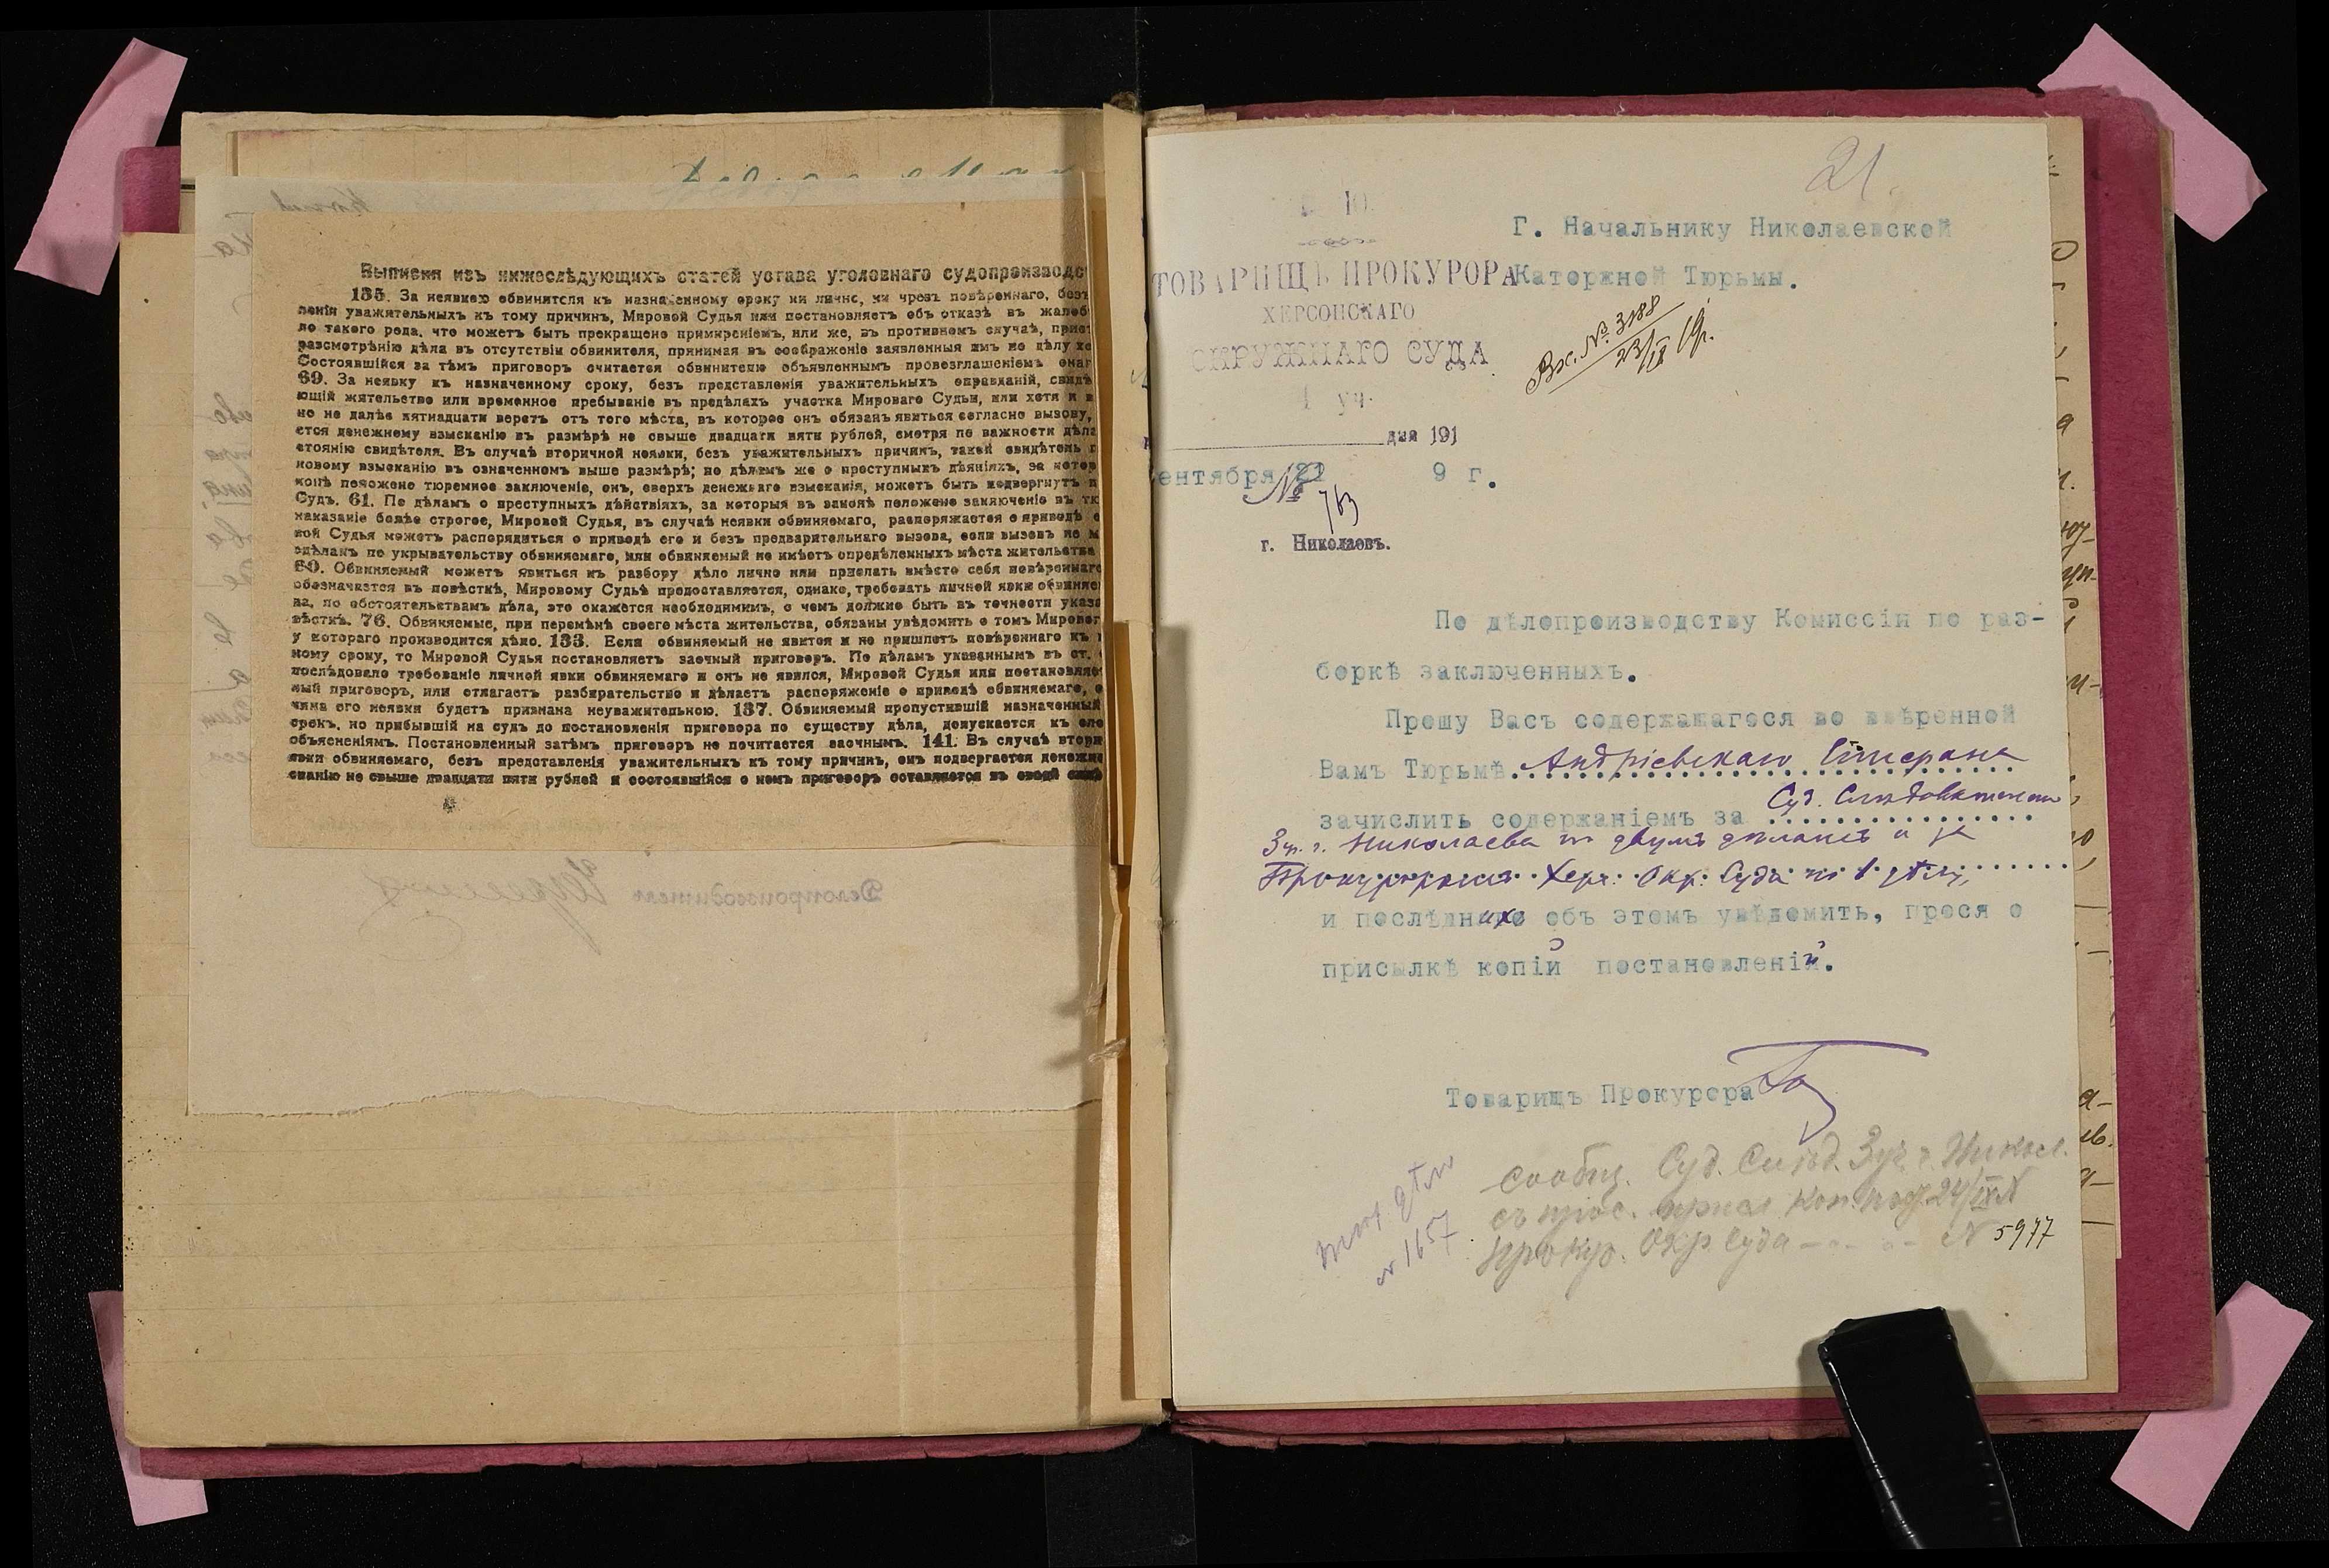 Выписка изъ нижеслѣдующихъ статей устава уголовнаго судопроизводс
135. За неявкою обвинителя къ назначенному сроку ни лично, ни чрезъ повѣреннаго, безъ
ленія уважительныхъ къ тому причинъ, Мировой Судья или постановляетъ объ отказѣ въ жалоб
ло такого рода, что можетъ быть прекращено примиреніемъ, или же, въ противномъ случаѣ, прис
разсмотрѣнію дѣла въ отсутствіи обвинителя, принимая въ соображеніе заявленныя имъ по дѣлу
Состоявшійся за тѣмъ приговоръ считается обвинителю объявленнымъ провозглашеніемъ онаг
69. За неявку къ назначенному сроку, безъ представленія уважительныхъ оправданій, свидѣ
ющій жительство или временное пребываніе въ предѣлахъ участка Мироваго Судьи, или хотя и в
но не далѣе пятнадцати верстъ отъ того мѣста, въ которое онъ обязанъ явиться согласно вызову,
ется денежному взысканію въ размѣрѣ не свыше двадцати пяти рублей, смотря по важности дѣла
стоянію свидѣтеля. Въ случаѣ вторичной неявки, безъ уважительныхъ причинъ, такой свидѣтель п
новому взысканію въ означенномъ выше размѣрѣ; по дѣламъ же о преступныхъ дѣяніяхъ, за котор
конѣ положено тюремное заключеніе, онъ, сверхъ денежнаго взысканія, можетъ быть подвергнутъ п
Судъ. 61. По дѣламъ о преступныхъ дѣйствіяхъ, за которыя въ законѣ положено заключеніе въ тю
наказаніе болѣе строгое, Мировой Судья, въ случаѣ неявки обвиняемаго, распоряжается о приводѣ е
вой Судья можетъ распорядиться о приводѣ его и безъ предварительнаго вызова, если вызовъ не м
сдѣланъ по укрывательству обвиняемаго, или обвиняемый не имѣетъ опредѣленныхъ мѣста жительства
60. Обвиняемый можетъ явиться къ разбору дѣло лично или прислать вмѣсто себя повѣреннаго
обозначается въ повѣсткѣ, Мировому Судьѣ предоставляется, однако, требовать личной явки обвиняе
ва, по обстоятельствамъ дѣла, это окажется необходимымъ, о чемъ должно быть въ точности указа
вѣсткѣ. 76. Обвиняемые, при перемѣнѣ своего мѣста жительства, обязаны увѣдомить о томъ Мировог
у котораго производится дѣло. 133. Если обвиняемый не явится и не пришлетъ повѣреннаго къ
ному сроку, то Мировой Судья постановляетъ заочный приговоръ. По дѣламъ указаннымъ въ ст.
послѣдовало требованіе личной явки обвиняемаго и онъ не явился, Мировой Судья или постановляе
ный приговоръ, или отлагаетъ разбирательство и дѣлаетъ распоряженіе о приводѣ обвиняемаго,
чина его неявки будетъ признана неуважительною. 137. Обвиняемый пропустившій назначенный
срокъ, но прибывшій на судъ до постановленія приговора по существу дѣла, допускается къ
объясненіямъ. Постановленный затѣмъ приговоръ не почитается заочнымъ. 141. Въ случаѣ втори
явки обвиняемаго, безъ представленія уважительныхъ къ тому причинъ, онъ подвергается денежн
сканію не свыше двадцати пяти рублей и состоявшійся о немъ приговоръ оставляется въ своей силѣ
Делопроизводитель
21.
Г. Начальнику Николаевской
Каторжной Тюрьмы.
Вх. № 3188
23/IX 19г.
Ю.
ТОВАРИЩЪ ПРОКУРОРА
ХЕРСОНСКАГО
ОКРУЖНАГО СУДА
1 уч.
дня 191
ентября 21 9 г.
№ 763
г. Николаевъ.
По дѣлопроизводству Комиссіи по раз-
боркѣ заключенныхъ.
Прошу Васъ содержащагося во ввѣренной
Вамъ Тюрьмѣ Андріевскаго Стефана
зачислить содержаніемъ за Суд. Слѣдователемъ
3 уч. г. Николаева по двумъ дѣламъ и за
Прокуроромъ Херс. Окр. Суда по 1 дѣлу,
и послѣднихъ объ этомъ увѣдомить, прося о
присылкѣ копій постановленій.
Товарищъ Прокурора
Сообщ. Суд. Слѣд. 3 уч. г. Никол.
съ прос. присл. коп. пост. 24/IX №
Прокур. Окр Суда - - - № 5977
№ 1657